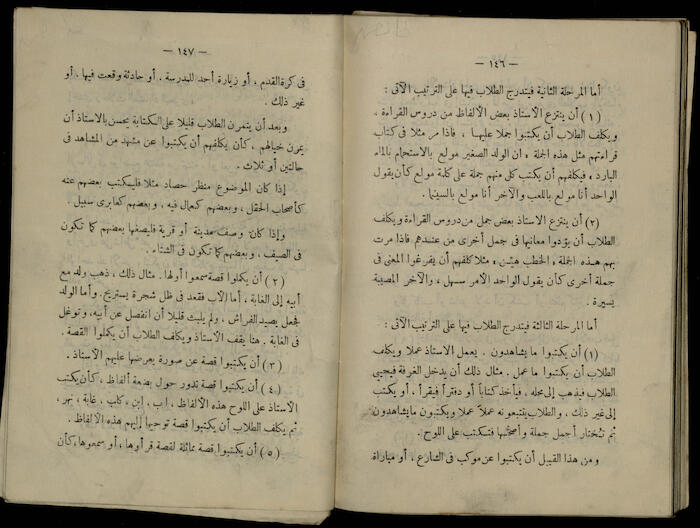 — ١٤٦ —
أما المرحلة الثانية فيتدرج الطلاب فيها على الترتيب الآتى :
(١) أن ينتزع الأستاذ بعض الألفاظ من دروس القراءة ،
ويكلف الطلاب أن يكتبوا جملا عليها ، فاذا مر مثلا فى كتاب
قراءتهم مثل هذه الجملة « ان الولد الصغير مولع بالاستحمام بالماء
البارد » فيكلفهم أن يكتب كل منهم جملة على كلمة مولع كأن يقول
الواحد أنا مولع باللعب والآخر أنا مولع بالسينما .
(٢) أن ينتزع الاستاذ بعض جمل من دروس القراءة ويكلف
الطلاب أن يؤدوا معانيها فى جمل أخرى من عندهم فاذا مرت
بهم هذه الجملة « الخطب هين » مثلا كلفهم أن يفرغوا المعنى فى
جملة أخرى كأن يقول الواحد الأمر سهل ، والآخر المصيبة
يسيرة .
أما المرحلة الثالثة فيتدرج الطلاب فيها على الترتيب الآتى :
(١) أن يكتبوا ما يشاهدون . يعمل الاستاذ عملا ويكلف
الطلاب أن يكتبوا ما عمل . مثال ذلك أن يدخل الغرفة فيحيى
الطلاب فيذهب إلى محله ، فيأخذ كتاباً أو دفتراً فيقرأ ، أو يكتب
إلى غير ذلك ، والطلاب يتبعونه عملاً عملا ويكتبون ما يشاهدون
ثم تختار أجمل جملة وأصحها فتكتب على اللوح .
ومن هذا القبيل أن يكتبوا عن موكب فى الشارع ، أو مباراة
— ١٤٧ —
فى كرة القدم ، أو زيارة أحد للمدرسة . أو حادثة وقعت فيها ، أو
غير ذلك .
وبعد أن يتمرن الطلاب قليلا على الكتابة يحسن بالاستاذ أن
يمرن خيالهم ، كأن يكلفهم أن يكتبوا عن مشهد من المشاهد فى
حالتين أو ثلاث .
إذا كان الموضوع منظر حصاد مثلا فليكتب بعضهم عنه
كأصحاب الحقل ، وبعضهم كعمال فيه ، وبعضهم كعابرى سبيل .
وإذا كان وصف مدينة أو قرية فليصفها بعضهم كما تكون
فى الصيف ، وبعضهم كما تكون فى الشتاء .
(٢) أن يكملوا قصة سمعوا أولها . مثال ذلك ، ذهب ولد مع
أبيه إلى الغابة ، أما الأب فقعد فى ظل شجرة يستريح . وأما الولد
فجعل يصيد الفراش ، ولم يلبث قليلا أن انفصل عن أبيه ، وتوغل
فى الغابة . هنا يقف الأستاذ ويكلف الطلاب أن يكملوا القصة .
(٣) أن يكتبوا قصة عن صورة يعرضها عليهم الأستاذ .
(٤) أن يكتبوا قصة تدور حول بضعة ألفاظ ، كأن يكتب
الأستاذ على اللوح هذه الألفاظ ، اب ، ابن ، كلب ، غابة ، نهر ،
ثم يكلف الطلاب أن يكتبوا قصة توحيها إليهم هذه الألفاظ .
(٥) أن يكتبوا قصة مماثلة لقصة قرأوها ، أو سمعوها ، كأن